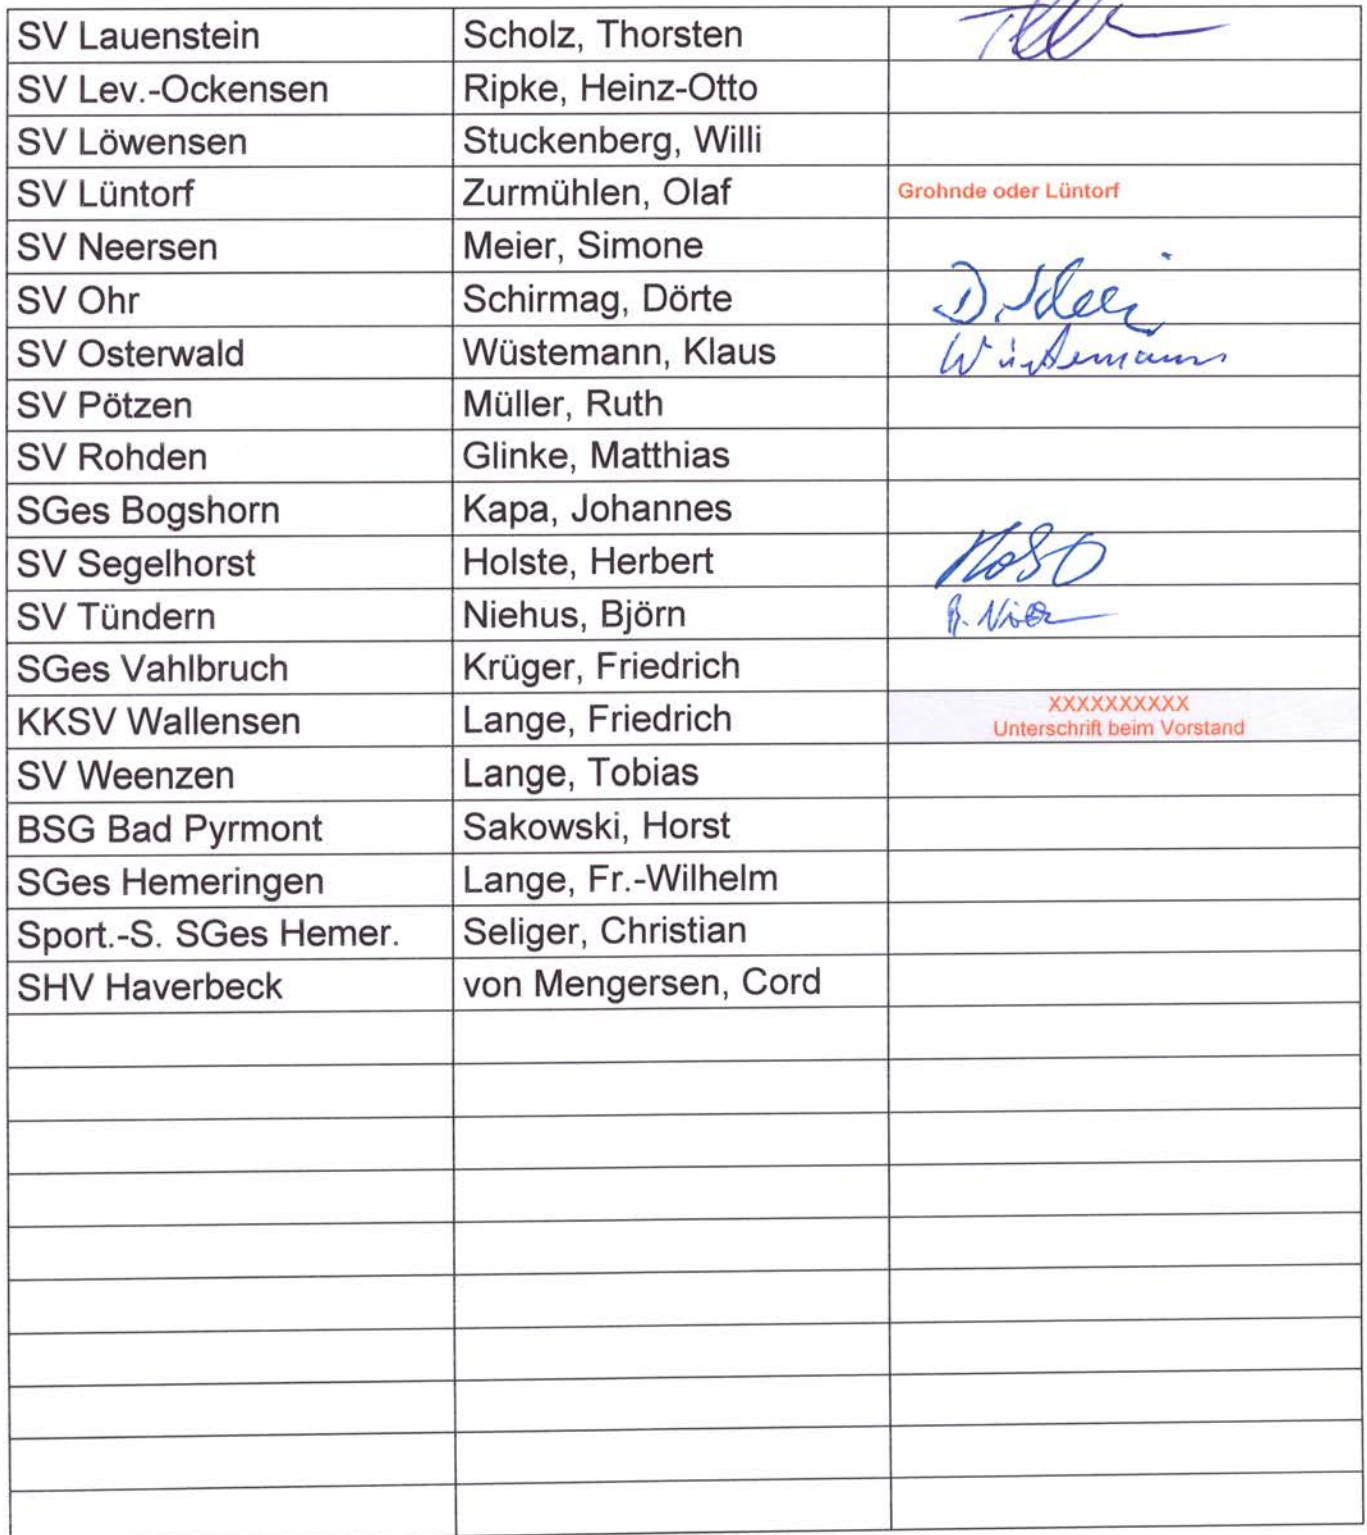 SV Lauenstein Scholz, Thorsten
SV Lev.-Ockensen Ripke, Heinz-Otto
SV Löwensen Stuckenberg, Willi
SV Lüntorf Zurmühlen, Olaf Grohnde oder Lüntorf
SV Neersen Meier, Simone
SV Ohr Schirmag, Dörte
SV Osterwald Wüstemann, Klaus Wüstemann
SV Pötzen Müller, Ruth
SV Rohden Glinke, Matthias
SGes Bogshorn Kapa, Johannes
SV Segelhorst Holste, Herbert
SV Tündern Niehus, Björn
SGes Vahlbruch Krüger, Friedrich
KKSV Wallensen Lange, Friedrich XXXXXXXXXX
Unterschrift beim Vorstand
SV Weenzen Lange, Tobias
BSG Bad Pyrmont Sakowski, Horst
SGes Hemeringen Lange, Fr.-Wilhelm
Sport.-S. SGes Hemer. Seliger, Christian
SHV Haverbeck von Mengersen, Cord